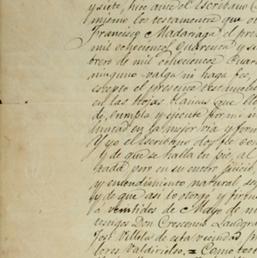 y siete, hizo ante el Escribano
mismo los testamentos que
Francisco Madariaga el pre
mil ochocientos Cuarenta y
brero de mil ochocientos Cuar
ninguno valga ni haga fee,
escepto el presente
en las Hojas llanas que
de, cumpla y ejecute por mi
luntad en la mejor via y form
Y yo el escribano doy fee
y de que se halla en pie, al
en su entero juicio,
y entendimiento natural, se
y de que asi lo otorgo y firm
a veintidos de Mayo de m
testigos Don Crescencio Landgra
José Villela de esta vecindad
lores Valdivielso = Como tes